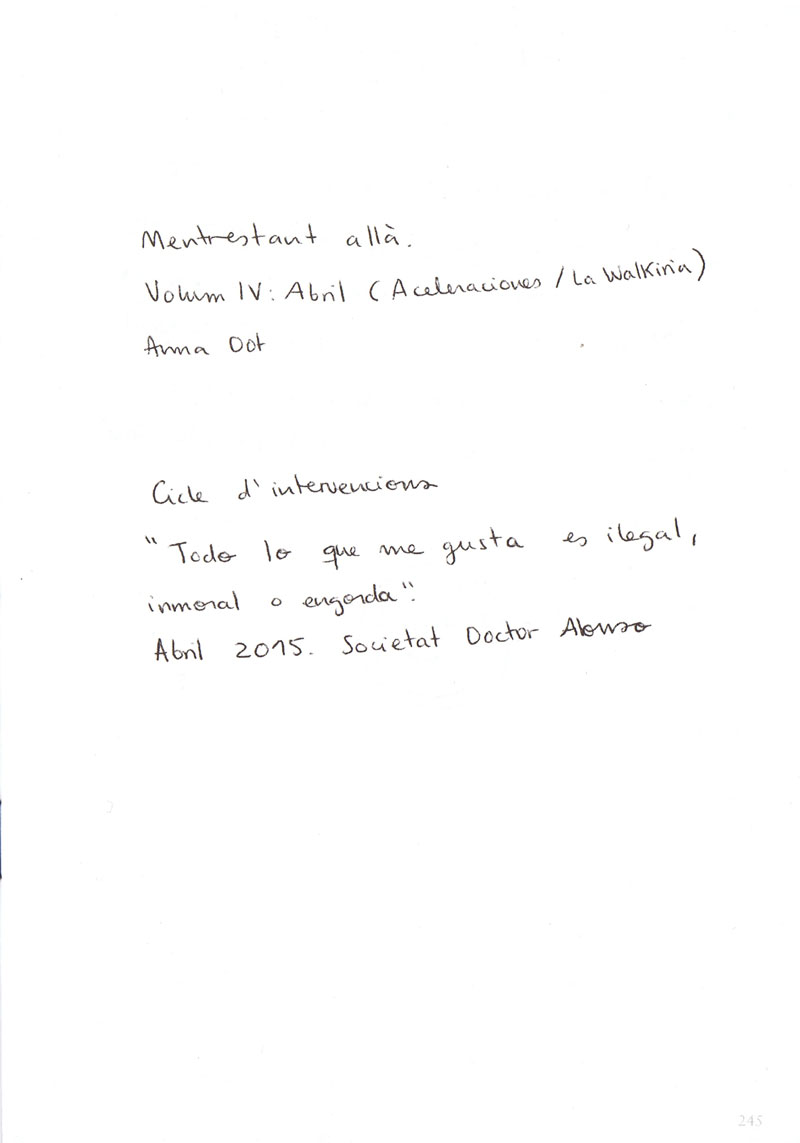 Mentrestant allà.
Volum IV: Abril (Aceleraciones / La Walkiria)
Anna Dot
Cicle d'intervencions
"Todo lo que me gusta es ilegal,
inmoral o engorda".
Abril 2015. Societat Doctor Alonso
245